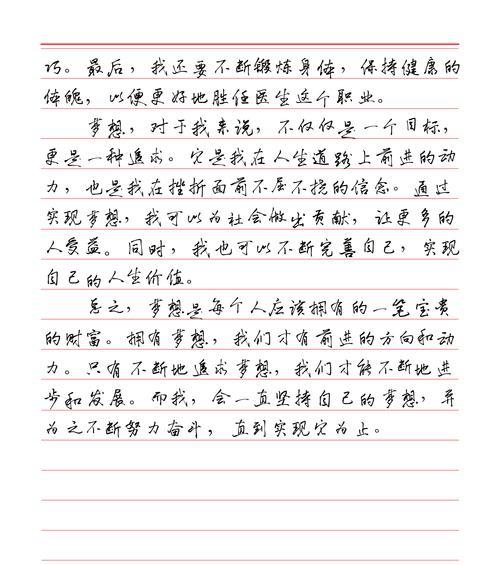 巧。最后，我还要不断锻炼身体，保持健康的
体魄，以便更好地胜任医生这个职业。
梦想，对于我来说，不仅仅是一个目标，
更是一种追求。它是我在人生道路上前进的动
力，也是我在挫折面前不屈不挠的信念。通过
实现梦想，我可以为社会做出贡献，让更多的
人受益。同时，我也可以不断完善自己，实现
自己的人生价值。
总之，梦想是每个人应该拥有的一笔宝贵
的财富。拥有梦想，我们才有前进的方向和动
力。只有不断地追求梦想，我们才能不断地进
步和发展。而我，会一直坚持自己的梦想，并
为之不断努力奋斗，直到实现它为止。